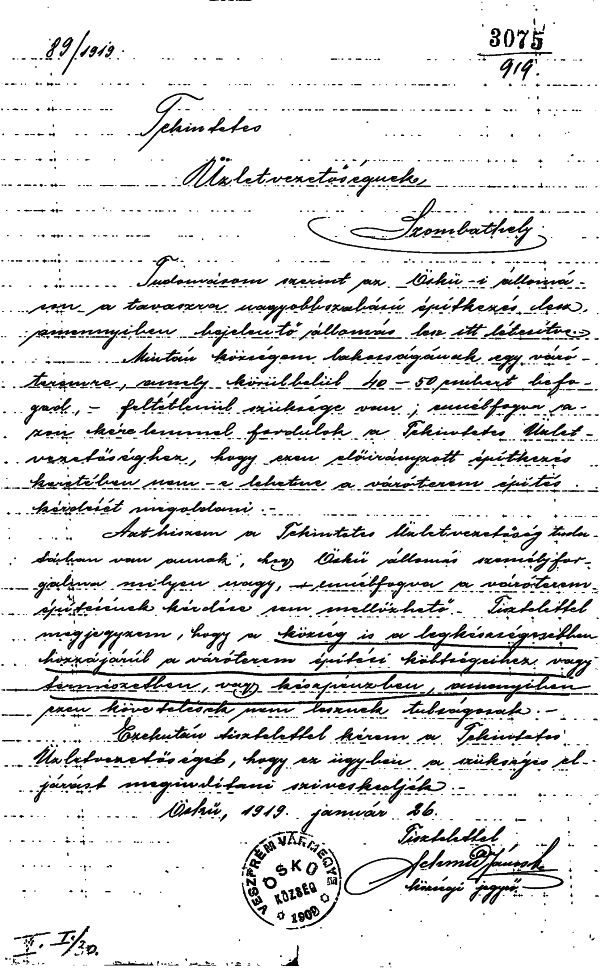 89/1919.
3075
919.
Tekintetes
Üzletvezetőségnek,
Szombathely
Tudomásom szerint az Öskü-i állomá-
son a tavaszra nagyobbszabású építkezés lesz,
amennyiben bejelentő állomás lesz itt létesítve.
Miután községem lakosságának egy váró-
teremre, amely körülbelül 40-50 embert befo-
gad, - feltétlenül szüksége van, ennélfogva a-
zon kérelemmel fordulok a Tekintetes Üzlet-
vezetőséghez, hogy ezen előirányzott építkezés
keretében nem-e lehetne a váróterem építés
kérdését megoldani.-
Azt hiszem a Tekintetes Üzletvezetőség tuda-
tában van annak, hogy Öskü állomás személyfor-
galma milyen nagy, ennélfogva a váróterem
építésének kérdése sem mellőzhető. Tisztelettel
megjegyzem, hogy a község is a legkészségesebben
hozzájárúl a váróterem építési költségeihez vagy
természetben, vagy készpénzben, amenyiben
ezen követelések nem lesznek tulságosak.-
Ezekután tisztelettel kérem a Tekintetes
Üzletvezetőséget, hogy ez ügyben a szükséges el-
járást megindítani sziveskedjék.-
Öskü, 1919. január 26.
Tisztelettel
János
községi jegyző.
VESZPRÉM VÁRMEGYE
ÖSKÜ
KÖZSÉG
1909
I. I/30.